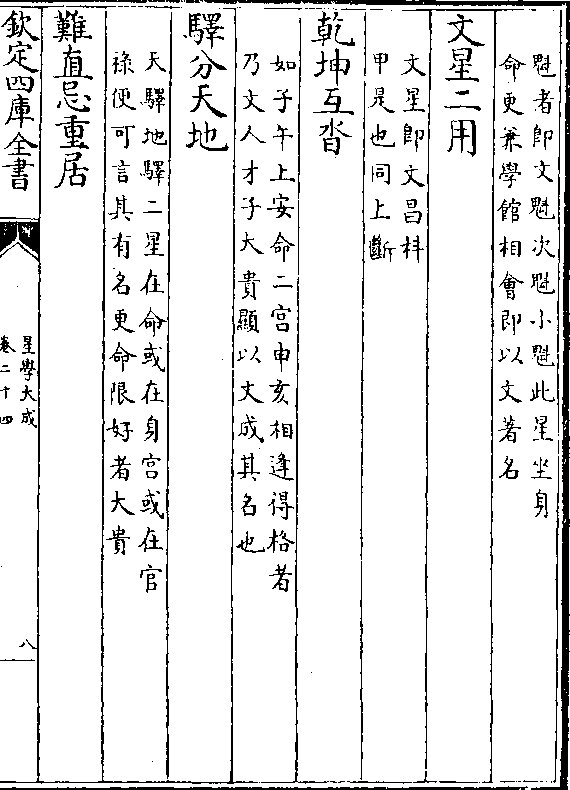 魁者即文魁次魁小魁此星坐身
命更兼學館相會即以文著名
文星二用
文星即文昌科
甲是也同上斷
乾坤互沓
如子午上安命二宫申亥相逢得格者
乃文人才子大貴顯以文成其名也
驛分天地
天驛地驛二星在命或在身宫或在官
祿便可言其有名更命限好者大貴
難直忌重居
欽定四庫全書
星學大成
卷二十四
八